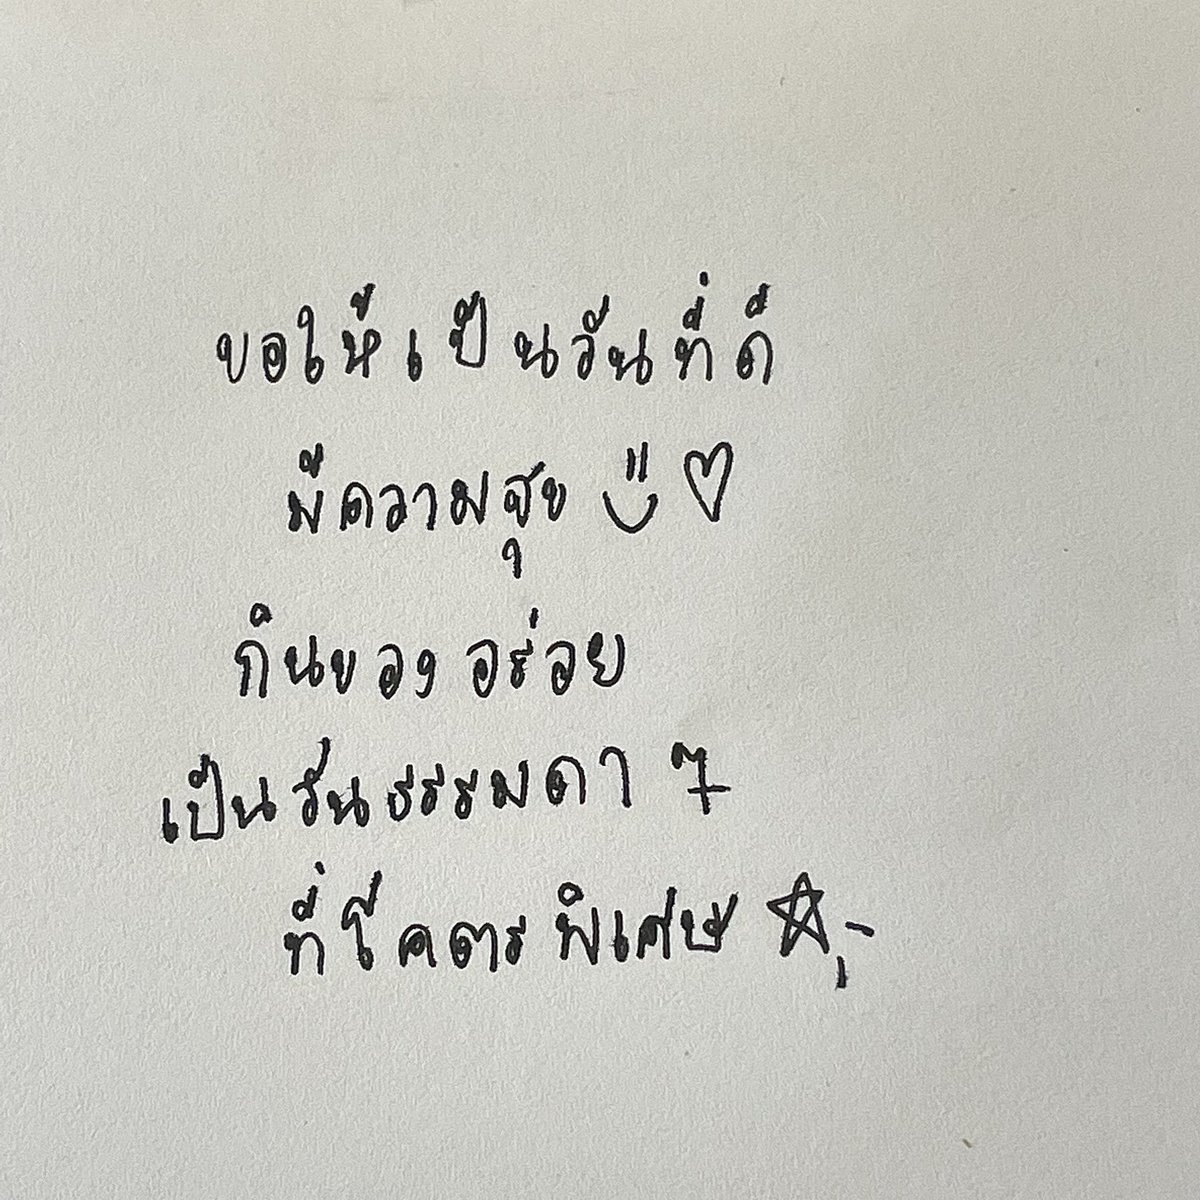 ขอให้เป็นวันที่ดี
มีความสุข
กินของอร่อย
เป็นวันธรรมดา ๆ
ที่โคตรพิเศษ